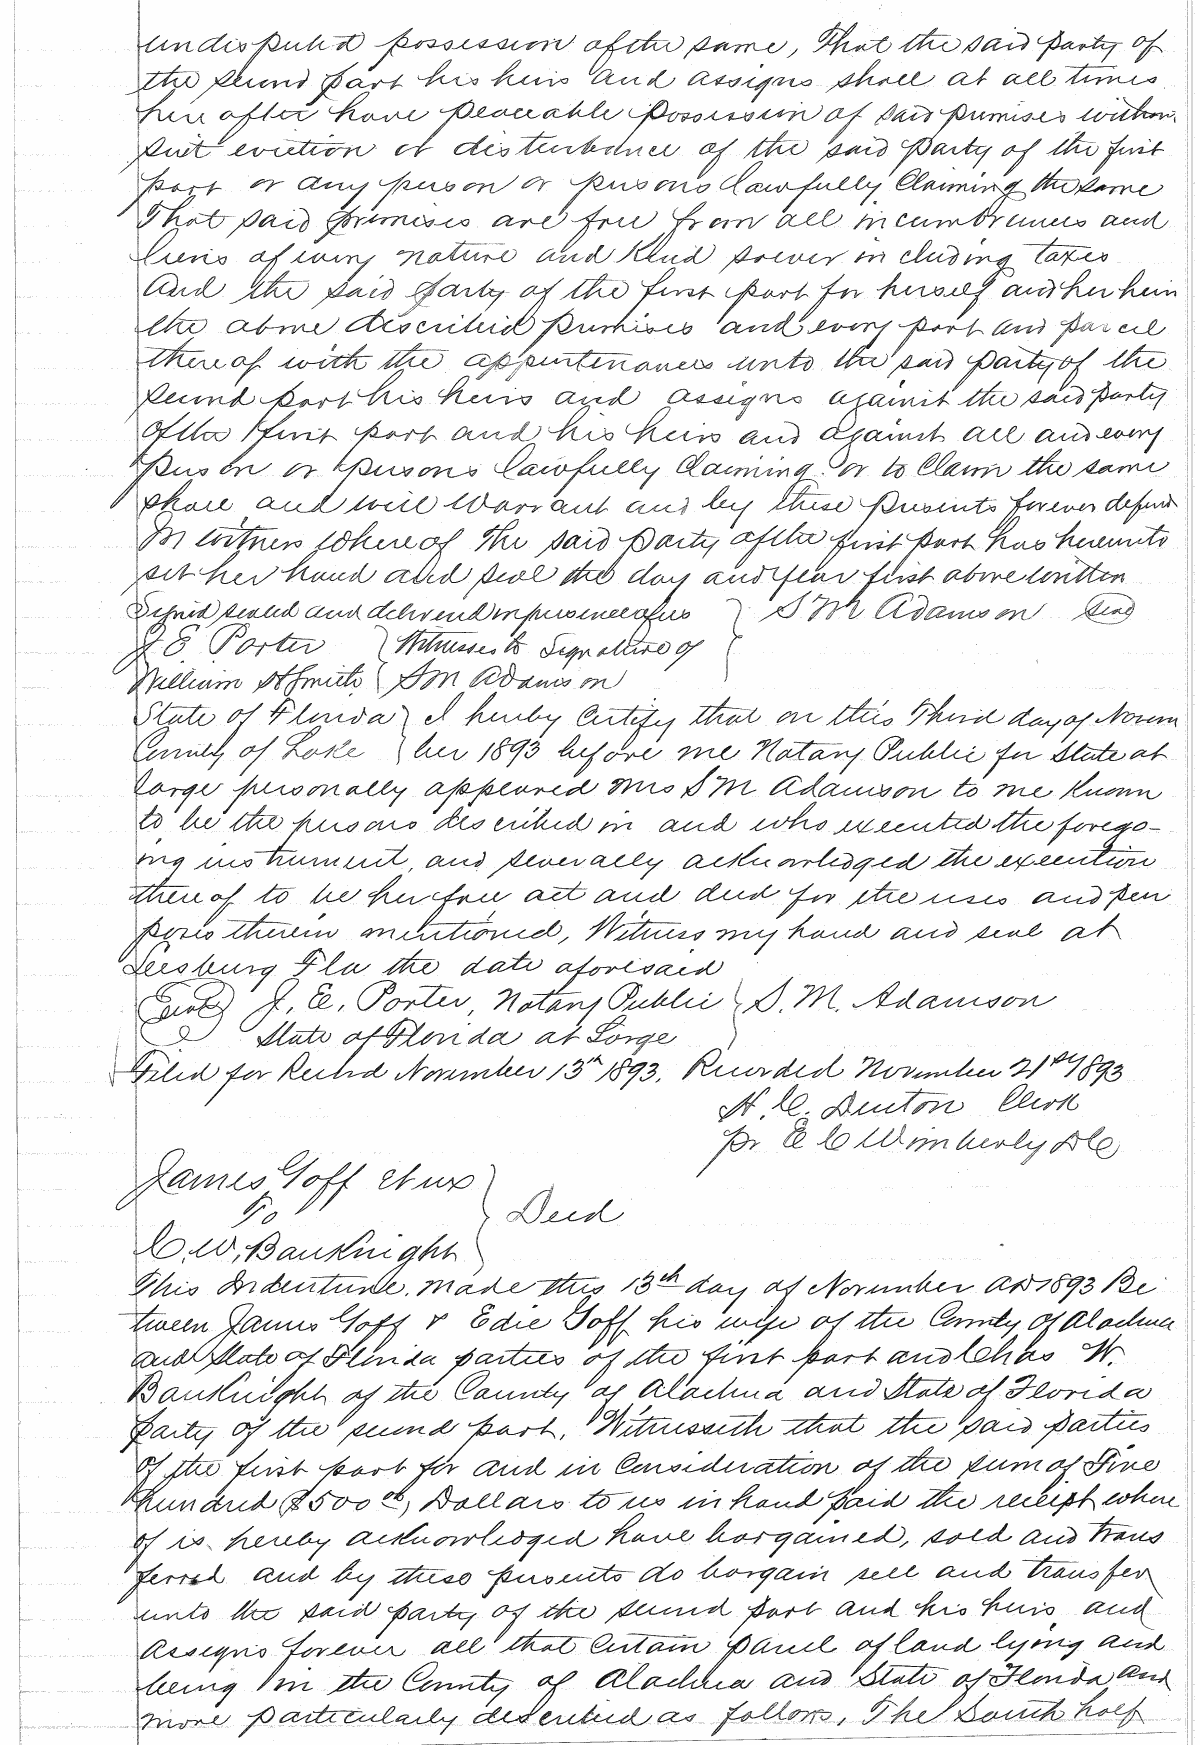 undisputed possession of the same, That the said party of
the second part his heirs and assigns shall at all times
here after have peaceable possession of said premises without
suit eviction or disturbance of the said party of the first
part or any person or persons lawfully claiming the same
That said premises are free from all incumbrances and
liens of every nature and kind soever including taxes
And the said party of the first part for herself and her heirs
the above described premises and every part and parcel
thereof with the appurtenances unto the said party of the
second part his heirs and assigns against the said party
of the first part and his heirs and against all and every
person or persons lawfully claiming or to claim the same
shall and will warrant and by these presents forever defend
In witness whereof the said party of the first part has hereunto
set her hand and seal the day and year first above written
Signed sealed and delivered in presence of us } S M Adamson Seal
J E Porter } Witnesses to Signature of
William H Smith } S M Adamson
State of Florida } I hereby certify that on this Third day of Novem
County of Lake } ber 1893 before me Notary Public for State at
large personally appeared Mrs S M Adamson to me known
to be the persons described in and who executed the forego-
ing instrument, and severally acknowledged the execution
thereof to be her free act and deed for the uses and pur
poses therein mentioned, Witness my hand and seal at
Leesburg Fla the date aforesaid
(Seal) J. E. Porter, Notary Public } S. M. Adamson
State of Florida at Large
Filed for Record November 13th 1893. Recorded November 21st 1893
H. C. Denton Clerk
pr E C Wimberly DC
James Goff et ux
To } Deed
C. W. BauKnight
This Indenture, made this 13th day of November AD 1893 Be
tween James Goff & Edie Goff his wife of the County of Alachua
and State of Florida parties of the first part and Chas W.
BauKnight of the County of Alachua and State of Florida
party of the second part, Witnesseth that the said parties
of the first part for and in consideration of the sum of Five
hundred ($500 00) Dollars to us in hand paid the receipt where
of is hereby acknowledged have bargained, sold and trans
ferred and by these presents do bargain sell and transfer
unto the said party of the second part and his heirs and
assigns forever all that certain parcel of land lying and
being in the County of Alachua and State of Florida and
more particularly described as follows, The South half